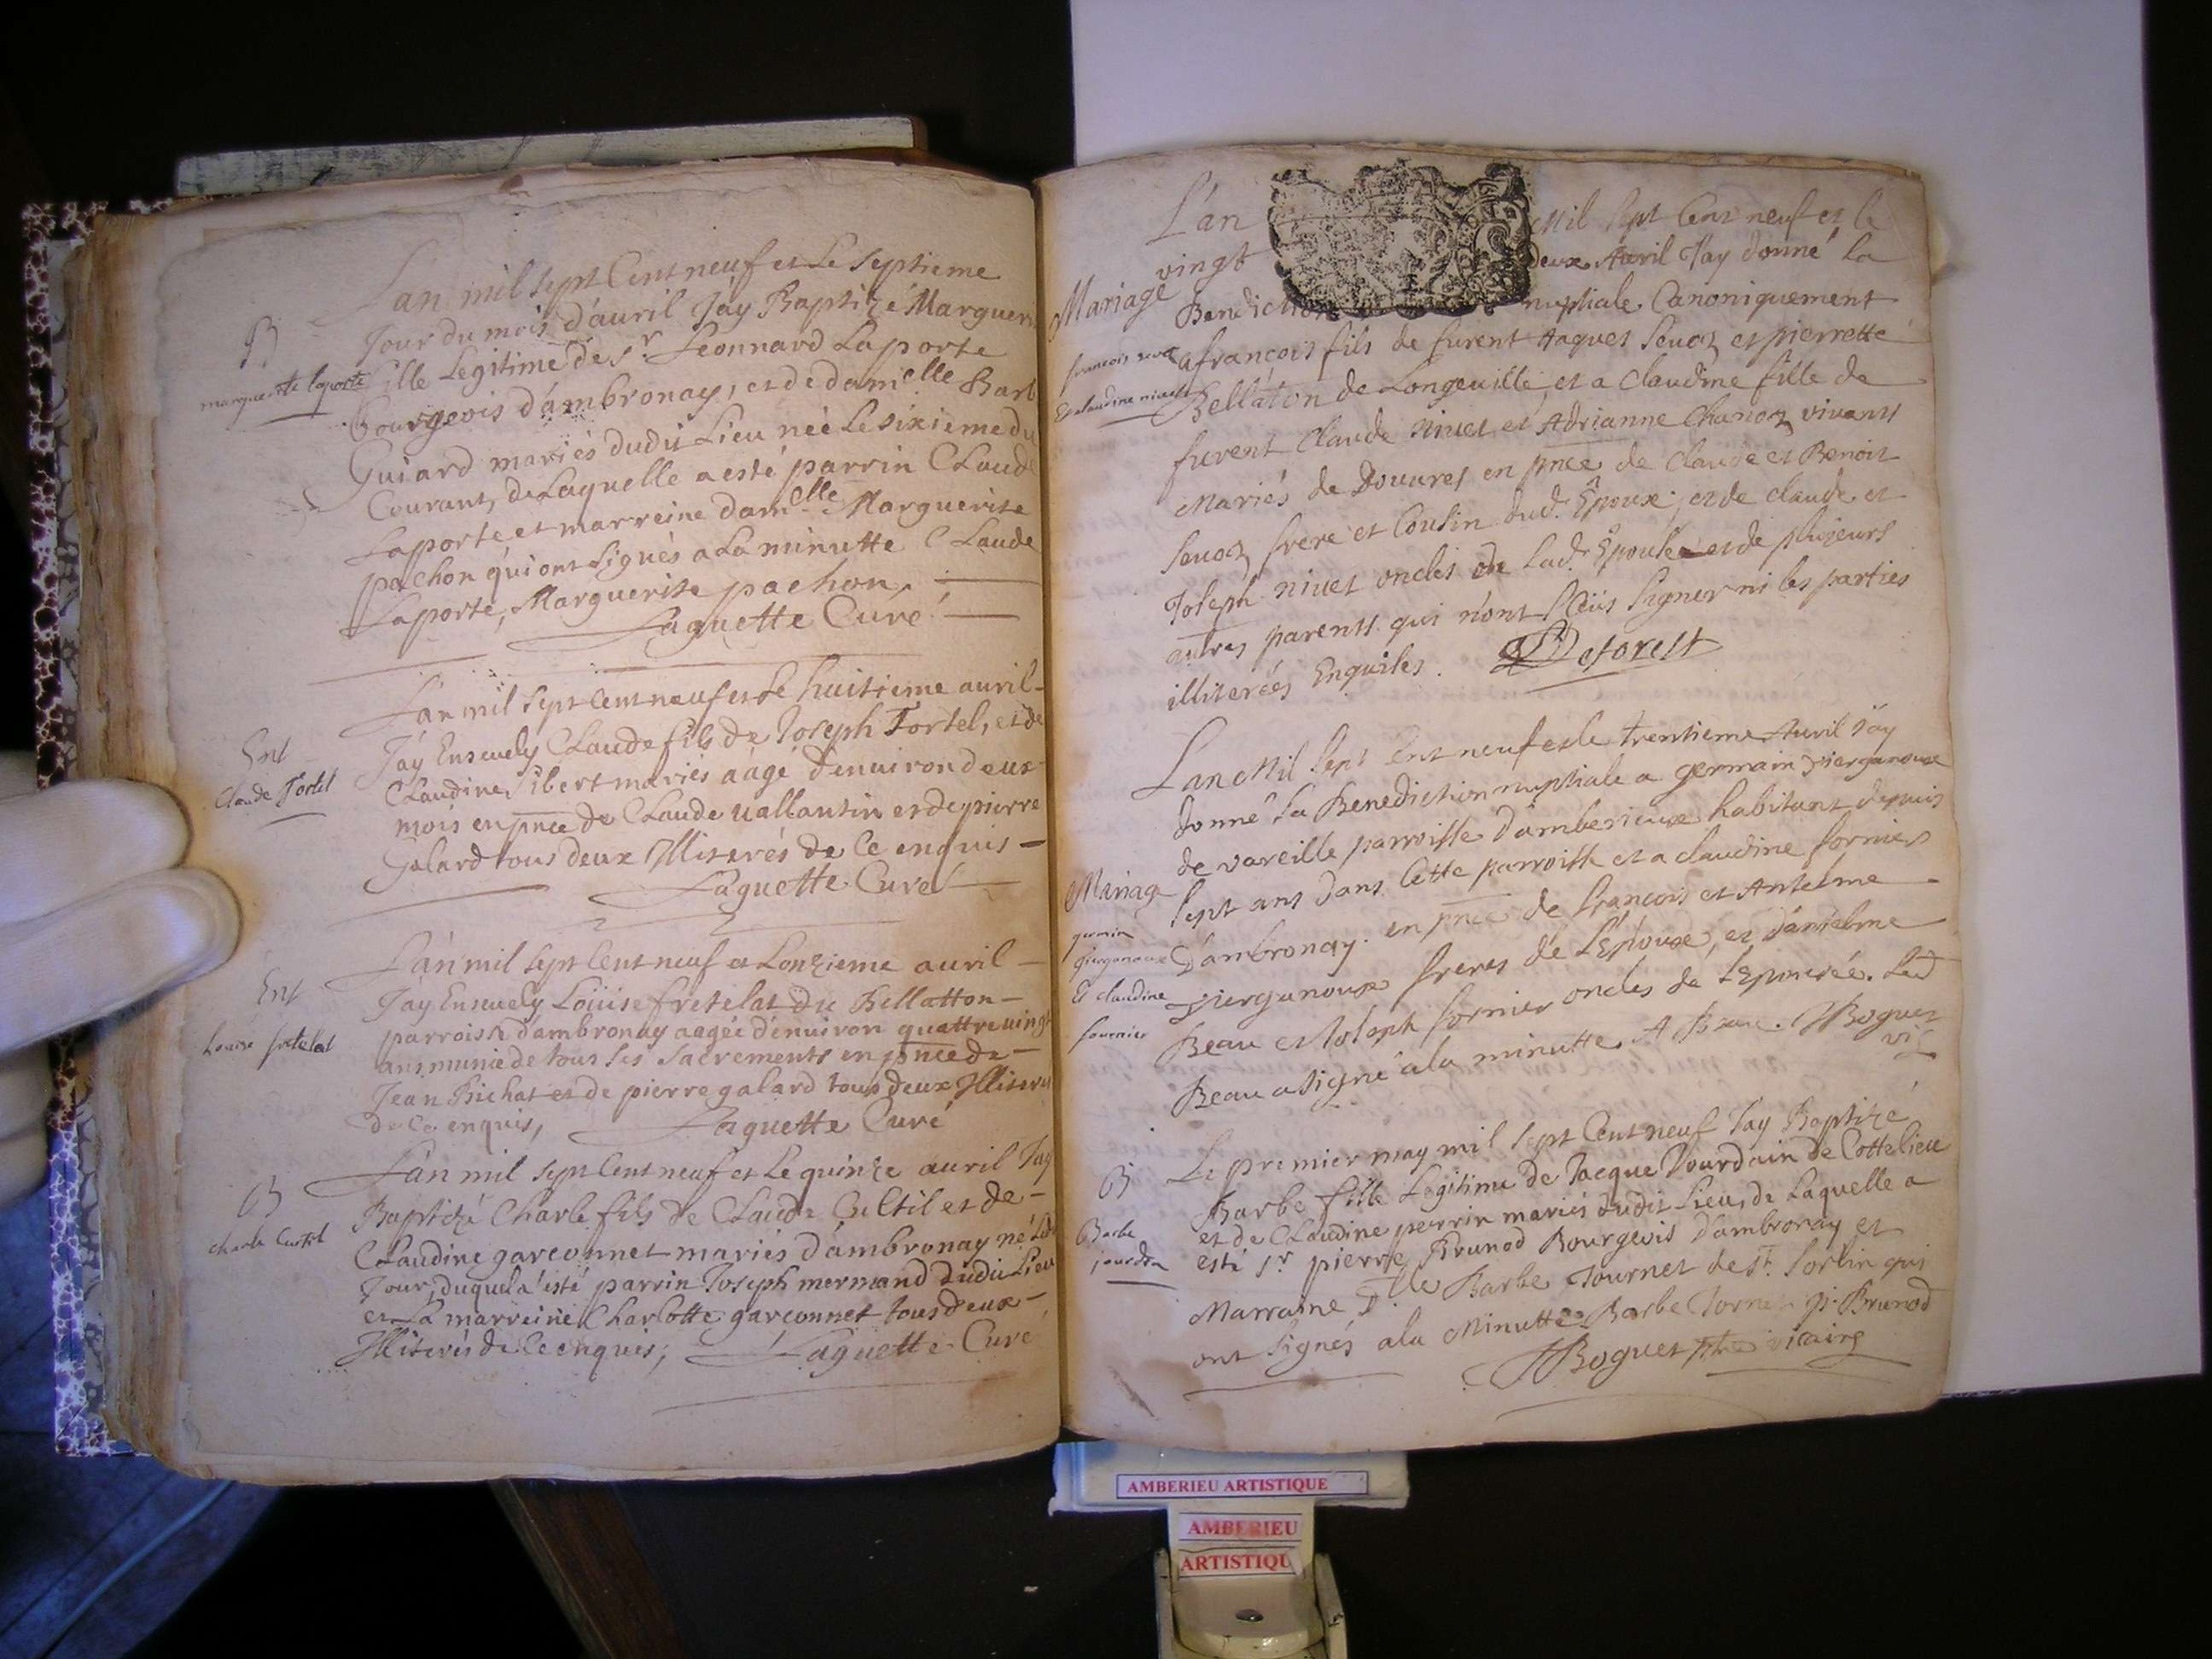 L'an mil sept Cent neuf et Le septieme
B
Jour du mois d'auril J'ay Baptizé Margueri
marguerite laporte
fille Legitime de Sr Leonnard Laporte
Bourgeois d'ambronay, et de damelle Barb
Guiard mariés dudit Lieu née Le sixieme du
Courant, de Laquelle a esté parrin Claude
Laporte et marreine damelle Marguerite
pachon qui ont signés a La minutte Claude
Laporte, Marguerite pachon.
Laguette Curé
L'an mil sept Cent neuf et Le huitieme auril
Ent
Claude Tortel
J'ay Enseuely Claude fils de Joseph Tortel, et de
Claudine Sibert mariés aagé d'enuiron deux
mois en pnce de Claude uallantin et de pierre
Galard tous deux Illiterés de Ce enquis
Laguette Curé
L'an mil sept Cent neuf et Lonzieme auril
Ent
Louise fretelat
J'ay Enseuely Loüise fretelat du Bellatton
parroisse d'ambronay aagée d'enuiron quattre uingt
ans munie de tous ses Sacrements en pnce de
Jean Bichat et de pierre galard tous deux Illiterés
de Ce enquis, Laguette Curé
L'an mil sept Cent neuf et Le quinze auril J'ay
B
charle Curtil
Baptizé Charle fils de Claude Cultil et de
Claudine garconnet mariés d'ambronay né Ledt
Jour, duquel a esté parrin Joseph mermand dudit Lieu
et La marreine Charlotte garconnet tous deux
Illiterés de Ce enquis, Laguette Curé
L'an Mil sept Cent neuf et le
vingt deux Auril J'ay donné la
Mariage
Benediction nuptiale Canoniquement
francois seuoz
a françois fils de furent Jaques Seuoz et pierrette
Et claudine niuet
Bellaton de Longeuille, et a Claudine fille de
furent Claude niuet et Adrianne Chanoz vivants
Mariés de Douures en pnce de Claude et Benoit
Seuoz frere et Cousin dud. Epoux, et de claude et
Joseph niuet oncles de lad. Epouse et de plusieurs
autres parents qui n'ont sceüs signer ni les parties
illiterées Enquises. Deforest
L'an Mil sept Cent neuf et le trentieme Auril j'ay
donné la Benediction nuptiale a germain giergunoux
de vareille parroisse d'amberieux habitant depuis
Mariage
sept ans dans Cette parroisse et a claudine fornier
germain
d'ambronay. en pnce de françois et Antelme
giergunoux
Et claudine
giergunoux freres de L'Epoux, et d'antelme
fournier
Beau et Joseph fornier oncles de L'Epousée. Led
Beau a signé a la minutte A Beau. JBoguet
vic
Le premier may mil sept Cent neuf J'ay Baptizé
B
Barbe
jourdin
Barbe fille Legitime de Jacque Jourdain de Cottelieu
et de Claudine perrin mariés dudit Lieu, de Laquelle a
esté sr pierre Brunod Bourgeois d'ambronay et
Marraine Dlle Barbe Tournet de st. Sorlin qui
ont signés a la Minutte Barbe Tornet p. Brunod
JBoguet ptre vicaire
AMBERIEU ARTISTIQUE
AMBERIEU
ARTISTIQU